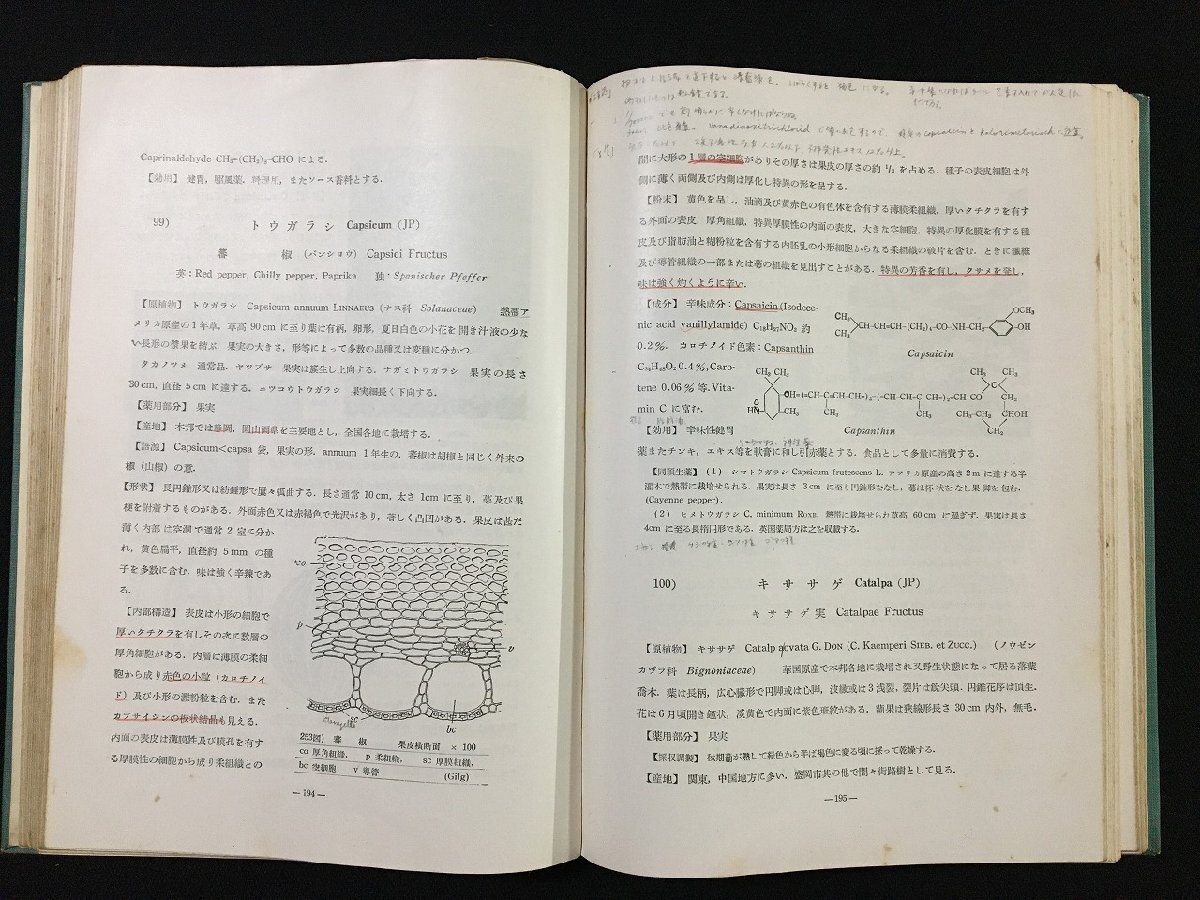 Caprinaldehyde CH₃-(CH₂)₈-CHO による.
【効用】 健胃, 駆風薬. 料理用, またソース香料とする.
99) トウガラシ Capsicum (JP)
蕃 椒 (バンショウ) Capsici Fructus
英: Red pepper, Chilly pepper, Paprika 独: Spanischer Pfeffer
【原植物】 トウガラシ Capsicum annuum LINNAEUS (ナス科 Solanaceae) 熱帯ア
メリカ原産の1年草, 草高 90 cm に至り葉は有柄, 卵形, 夏日白色の小花を開き汁液の少な
い長形の漿果を結ぶ. 果実の大きさ, 形等によって多数の品種又は変種に分かつ.
タカノツメ 通常品, ヤツブサ 果実は簇生し上向する. ナガミトウガラシ 果実の長さ
30 cm, 直径 5 cm に達する. ニッコウトウガラシ 果実細長く下向する.
【薬用部分】 果実
【産地】 本邦では静岡, 岡山両県を主要地とし, 全国各地で栽培する.
【語源】 Capsicum<capsa 袋, 果実の形. annuum 1年生の. 蕃椒は胡椒と同じく外来の
椒 (山椒) の意.
【形状】 長円錐形又は紡錘形で屡々弯曲する. 長さ通常 10 cm, 太さ 1 cm に至り, 萼及び果
梗を附着するものがある. 外面赤色又は赤褐色で光沢があり, 著しく凸凹がある. 果皮は甚だ
薄く内部は空洞で通常 2 室に分か
れ, 黄色扁平, 直径約 5 mm の種
子を多数に含む. 味は強く辛辣であ
る.
【内部構造】 表皮は小形の細胞で
厚いクチクラを有しその次に数層の
厚角細胞がある. 内層に薄膜の柔細
胞から成り赤色の小粒 (カロチノイ
ド) 及び小形の澱粉粒を含む. また
カプサイシンの板状結晶も見える.
内面の表皮は薄膜性及び膜孔を有す
る厚膜性の細胞から成り柔組織との
co
p
v
sc
bc
蕃 椒 果皮横断面 × 100
co 厚角組織, p 柔組織, sc 厚膜組織,
bc 空細胞 v 導管 (Gilg)
—194—
間に大形の1層の空細胞がありその厚さは果皮の厚さの約 を占める. 種子の表皮細胞は外
側に薄く両側及び内側は厚化し特異の形を呈する.
【粉末】 黄色を呈し, 油滴及び黄赤色の有色体を含有する薄膜柔組織, 厚いクチクラを有す
る外面の表皮, 厚角組織, 特異厚膜性の内面の表皮, 大きな空細胞, 特異の厚化膜を有する種
皮及び脂肪油と糊粉粒を含有する内胚乳の小形細胞からなる柔組織の破片を含む. ときに繊維
及び導管組織の一部または萼の組織を見出すことがある. 特異の芳香を有し, クサメを発し,
味は強く灼くように辛い.
【成分】 辛味成分: Capsaicin (Isodece-
nic acid vanillylamide) C₁₈H₂₇NO₃ 約
0.2%. カロチノイド色素: Capsanthin
0.4%, Caro-
tene 0.06% 等. Vita-
min C に富む.
Capsaicin
Capsanthin
【効用】 辛味性健胃
薬またチンキ, エキス等を軟膏に和し引赤薬とする. 食品として多量に消費する.
【同類生薬】 (1) シマトウガラシ Capsicum frutescens L. アメリカ原産の高さ 2 m に達する半
灌木で熱帯に栽培せられる. 果実は長さ 3 cm に至る円錐形をなし, 萼は杯状をなし果脚を包む.
(Cayenne pepper).
(2) ヒメトウガラシ C. minimum ROXB. 熱帯に栽培せられ草高 60 cm に過ぎず, 果実は長さ
4cm に至る長楕円形である. 英国薬局方は之を収載する.
100) キササゲ Catalpa (JP)
キササゲ実 Catalpae Fructus
【原植物】 キササゲ Catalpa ovata G. DON (C. Kaemperi SIEB. et ZUCC.) (ノウゼン
カヅラ科 Bignoniaceae) 華国原産で本邦各地に栽培され又野生状態になって居る落葉
喬木. 葉は長柄, 広心臓形で円脚或は心脚, 波縁或は3浅裂, 裂片は鋭尖頭. 円錐花序は頂生.
花は6月頃開き鐘状, 淡黄色で内面に紫色斑紋がある. 蒴果は狭線形長さ 30 cm 内外, 無毛.
【薬用部分】 果実
【採収調製】 秋期蒴が熟して緑色から半ば褐色に変る頃に採って乾燥する.
【産地】 関東, 中国地方に多い, 盛岡市其の他で間々街路樹として見る.
—195—